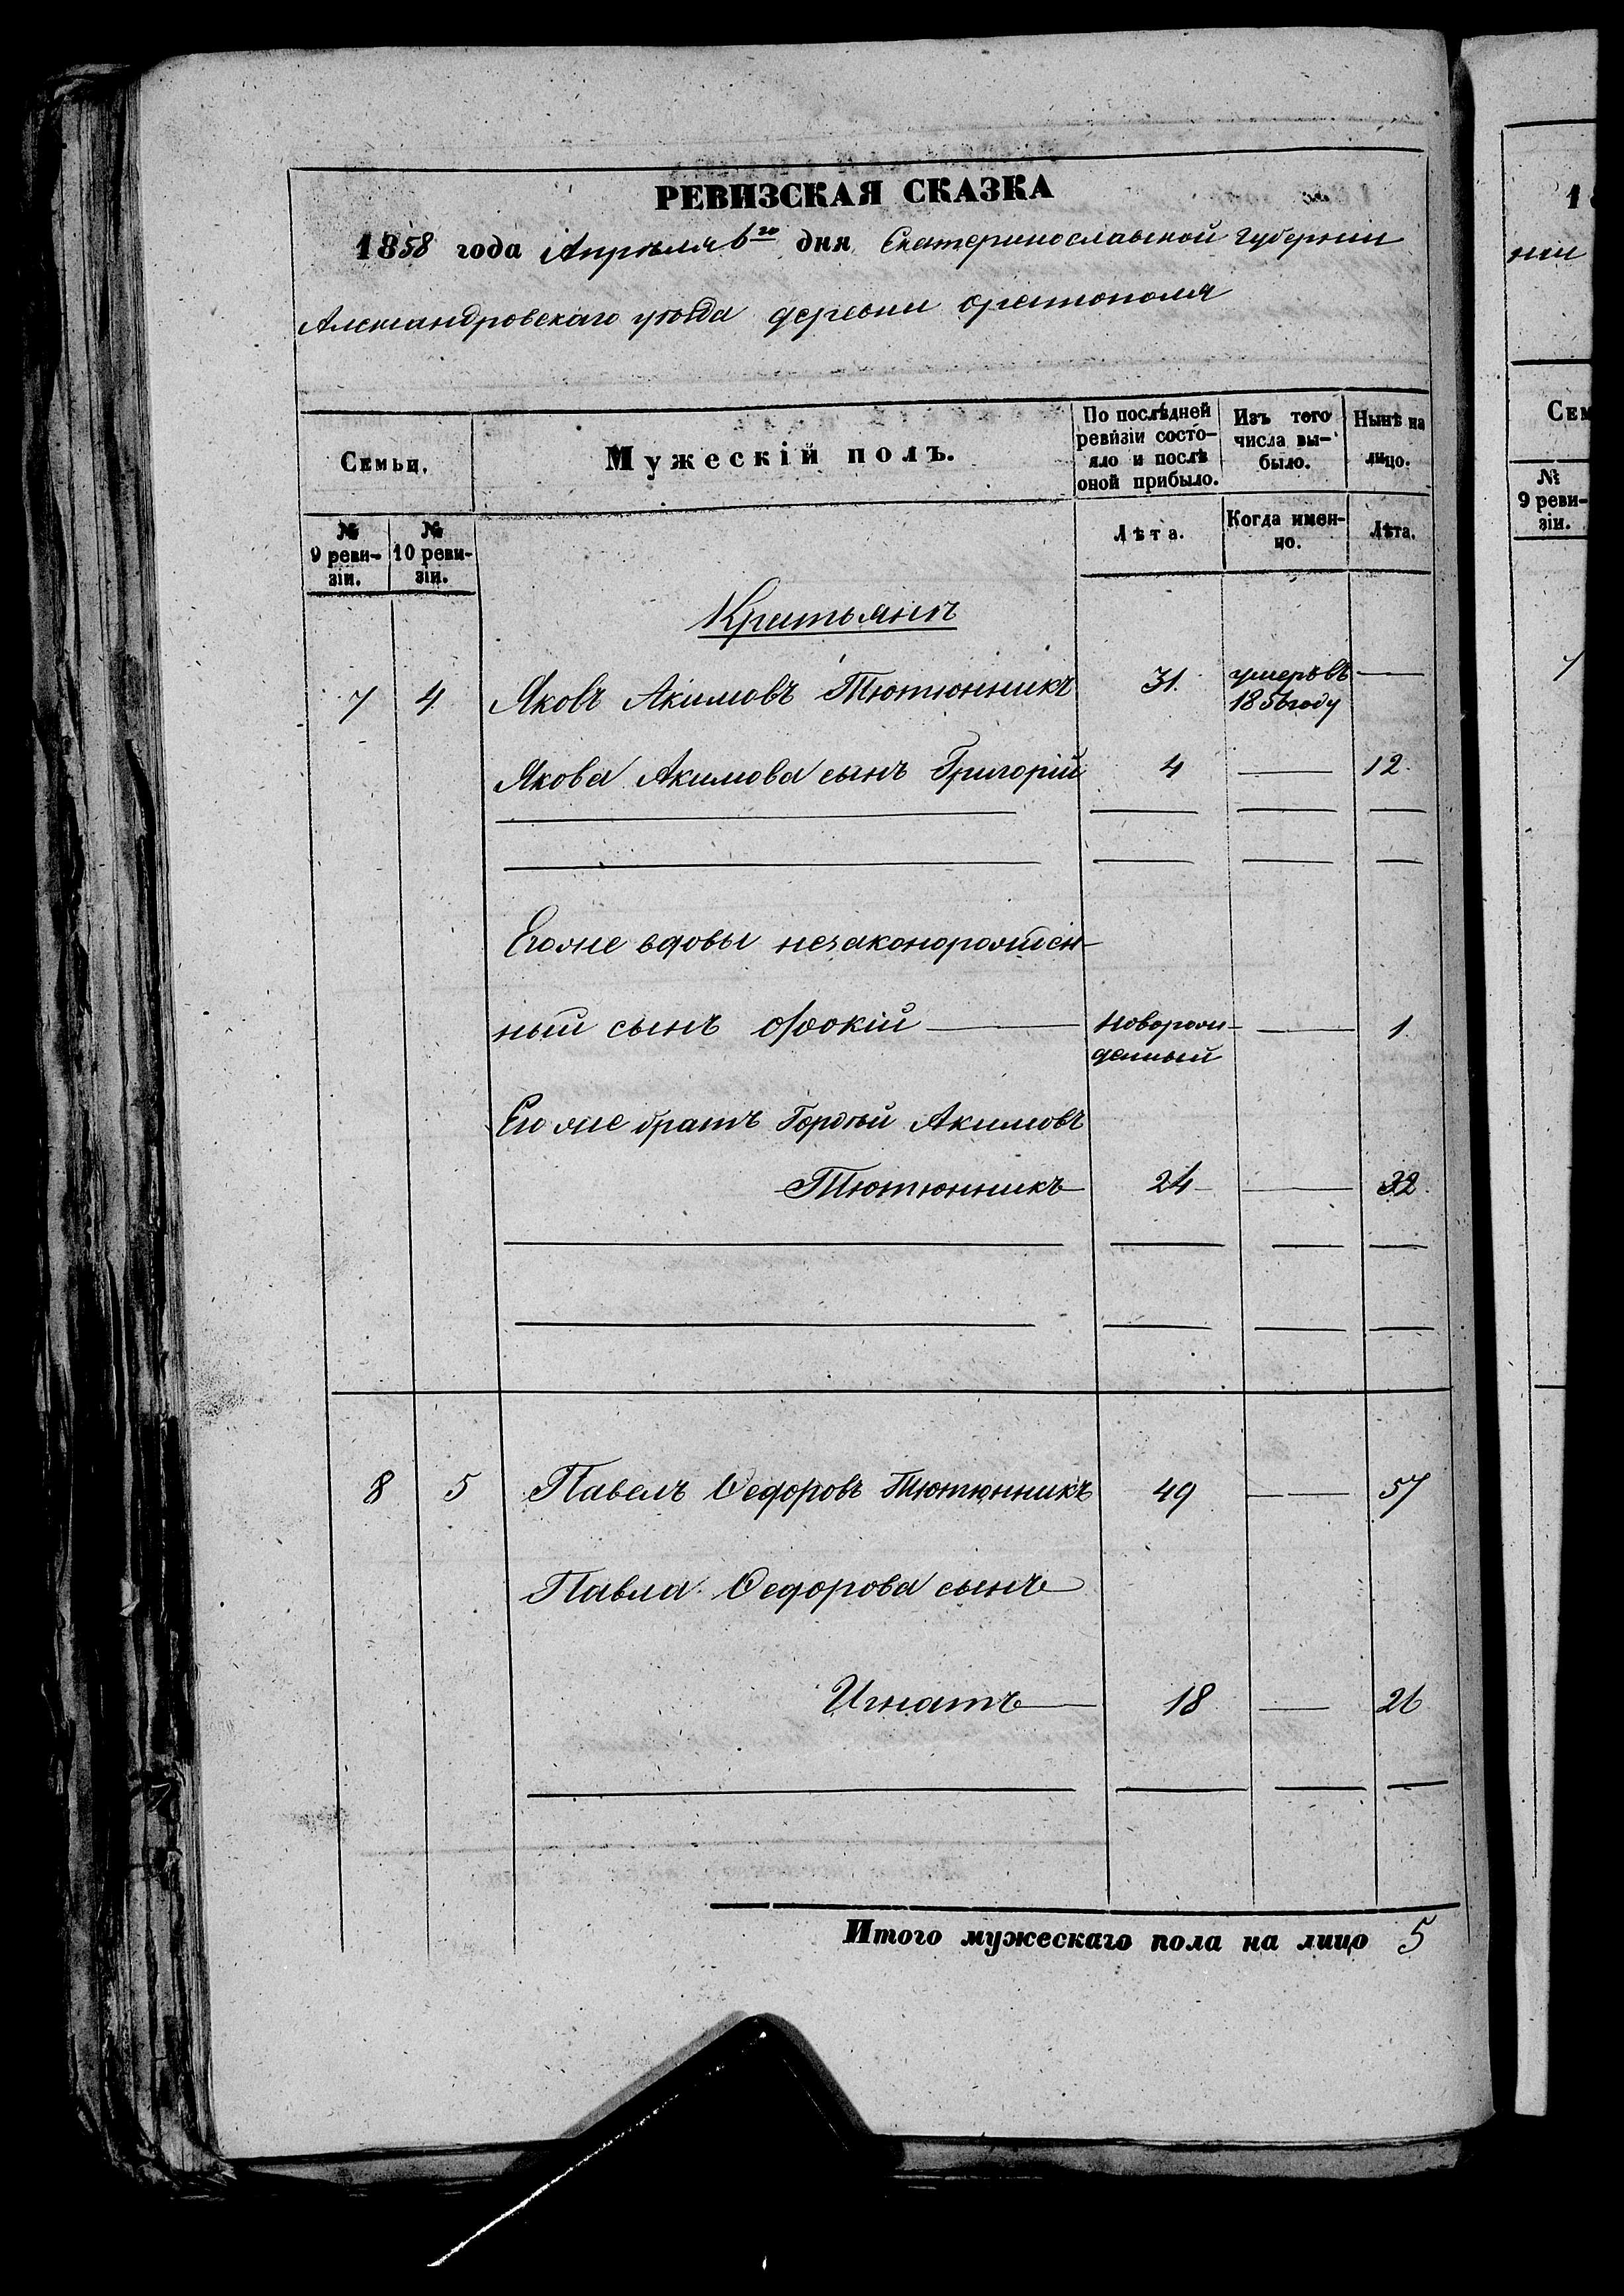 РЕВИЗСКАЯ СКАЗКА
1858 года Апрѣля 6го дня Екатеринославской Губерніи
Александровскаго уѣзда деревни Орестополя
Семьи.
Мужескій полъ.
По послѣдней
ревизіи состо-
яло и послѣ
оной прибыло.
Изъ того
числа вы-
было.
Нынѣ на
лицо.
№
9 реви-
зіи.
№
10 реви-
зіи.
Лѣта.
Когда имен-
но.
Лѣта.
Крестьянъ
7 4 Яковъ Акимовъ Тютюнникъ 31. умеръ въ —
1856 году
Якова Акимова сынъ Григорій 4 — 12.
Его же вдовы незаконорожден-
ный сынъ Фокій — Новорож- — 1.
денный
Его же братъ Гордѣй Акимовъ
Тютюнникъ 24 — 32.
8 5 Павелъ Ѳедоровъ Тютюнникъ 49 — 57
Павла Ѳедорова сынъ
Игнатъ — 18 — 26
Итого мужескаго пола на лицо 5
1
ніи
Сем
№
9 реви-
зіи.
7